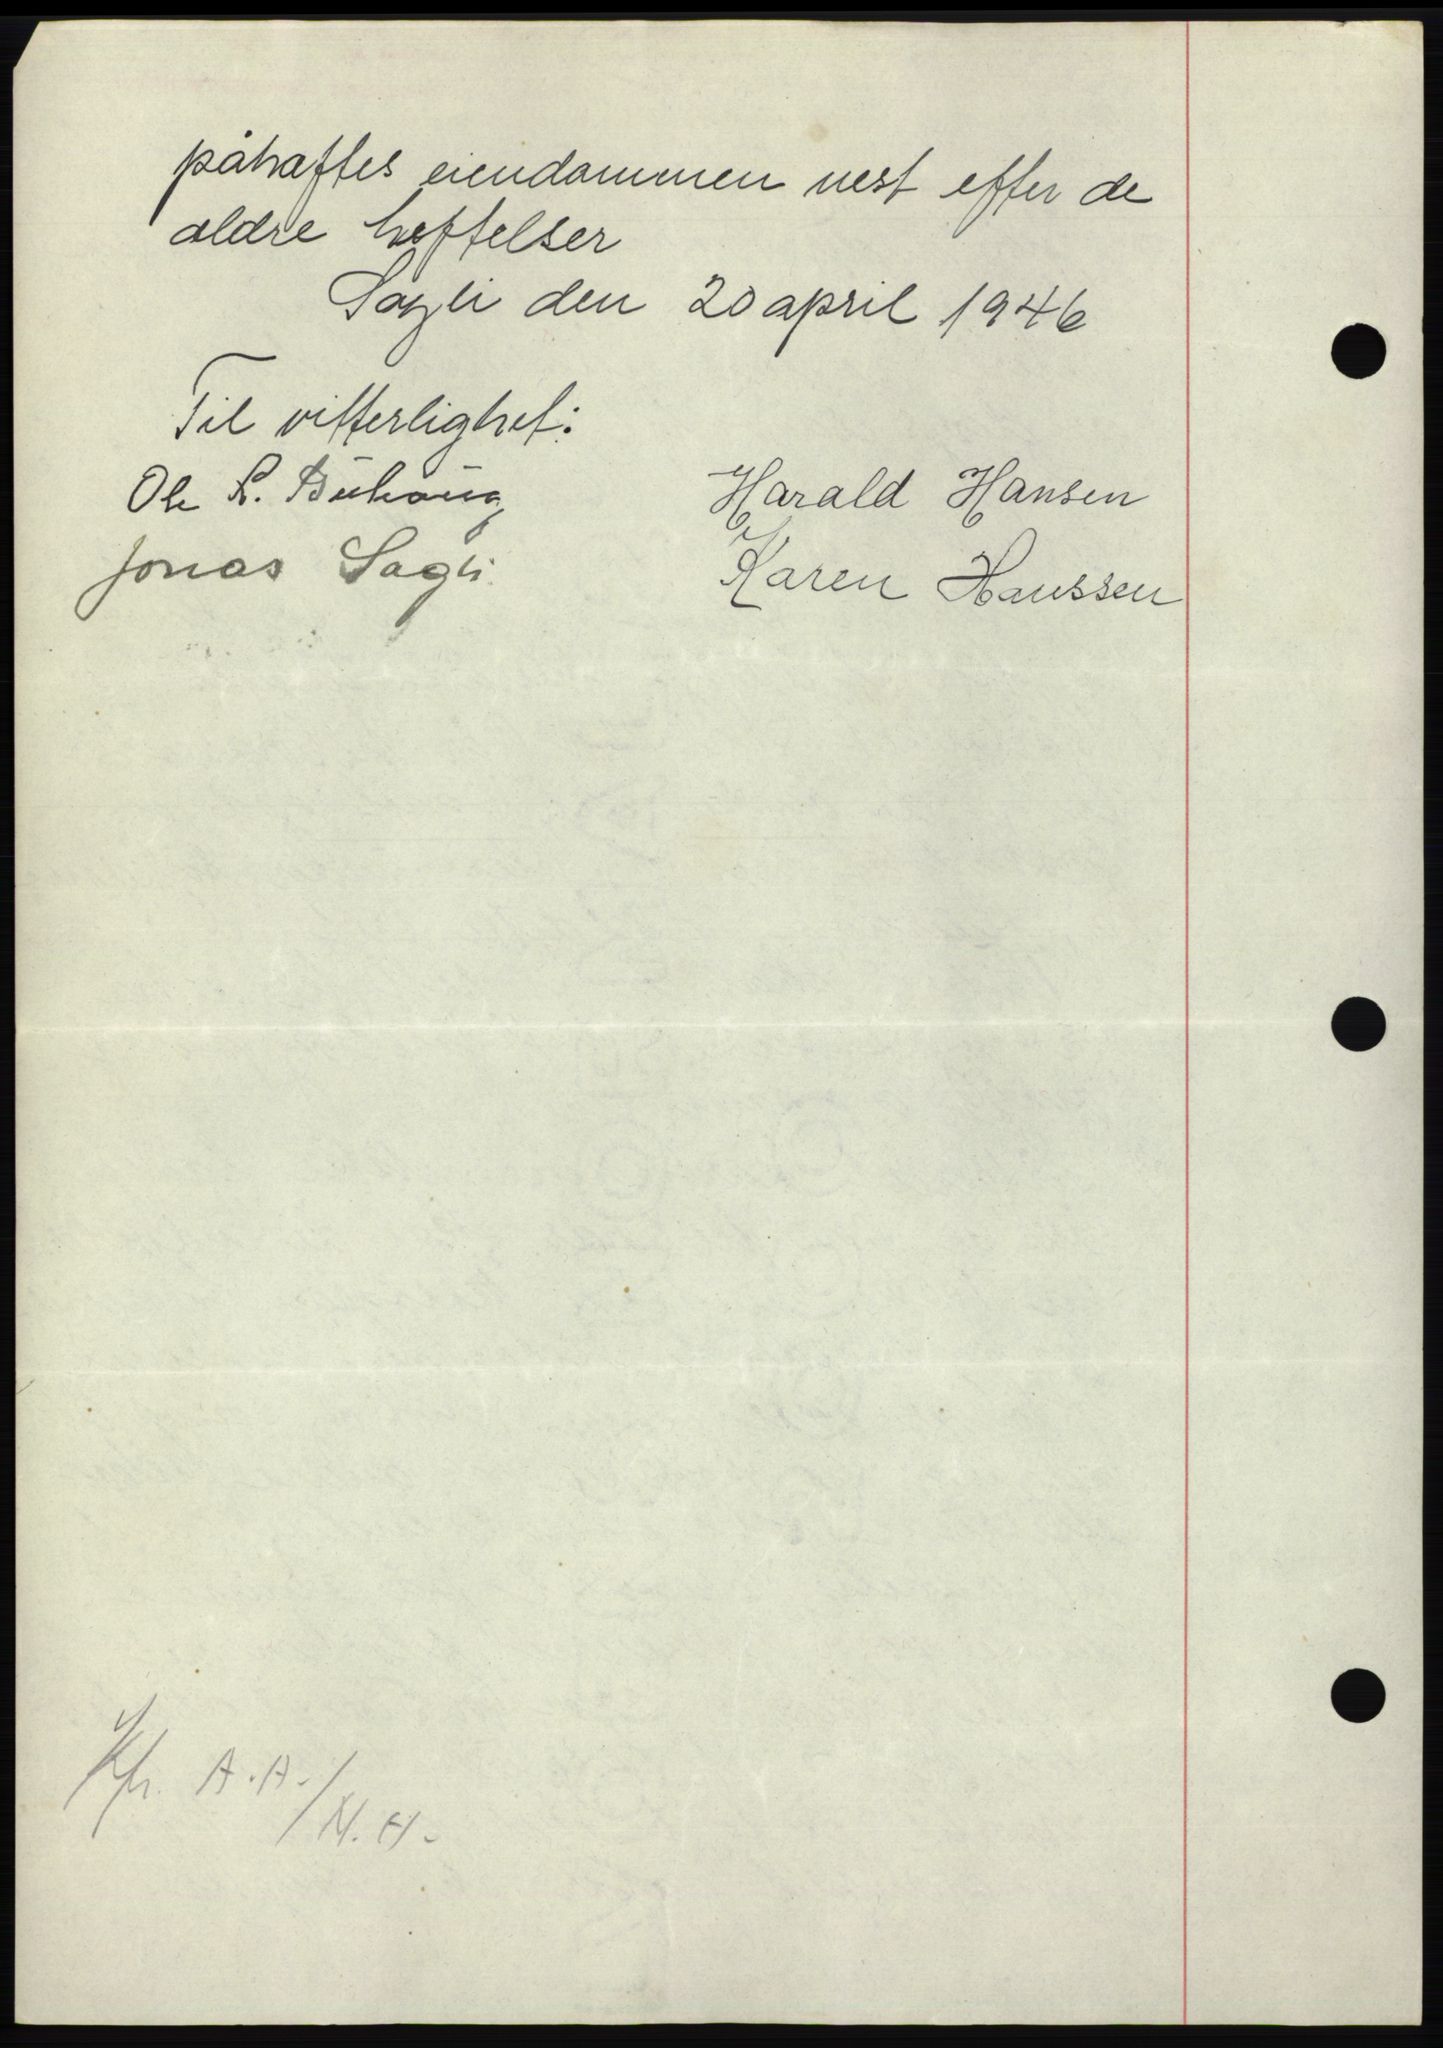 påhæftes eiendommen nest efter de
ældre heftelser
Sagli den 20 april 1946
Til vitterlighet:
Ole K. Buhaug
Harald Hansen
Jonas Sagli
Karen Hanssen
Kfr. A.A./N.H.